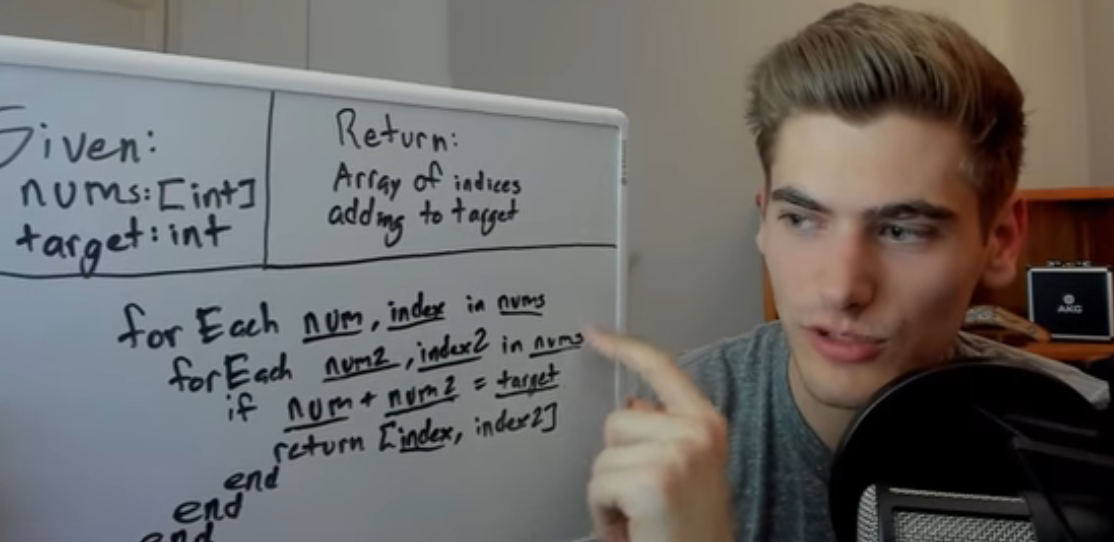 Given:
nums:[int]
target:int
Return:
Array of indices
adding to target
for Each num, index in nums
forEach num2, index2 in nums
if num + num2 = target
return [index, index2]
end
end
end
AKG